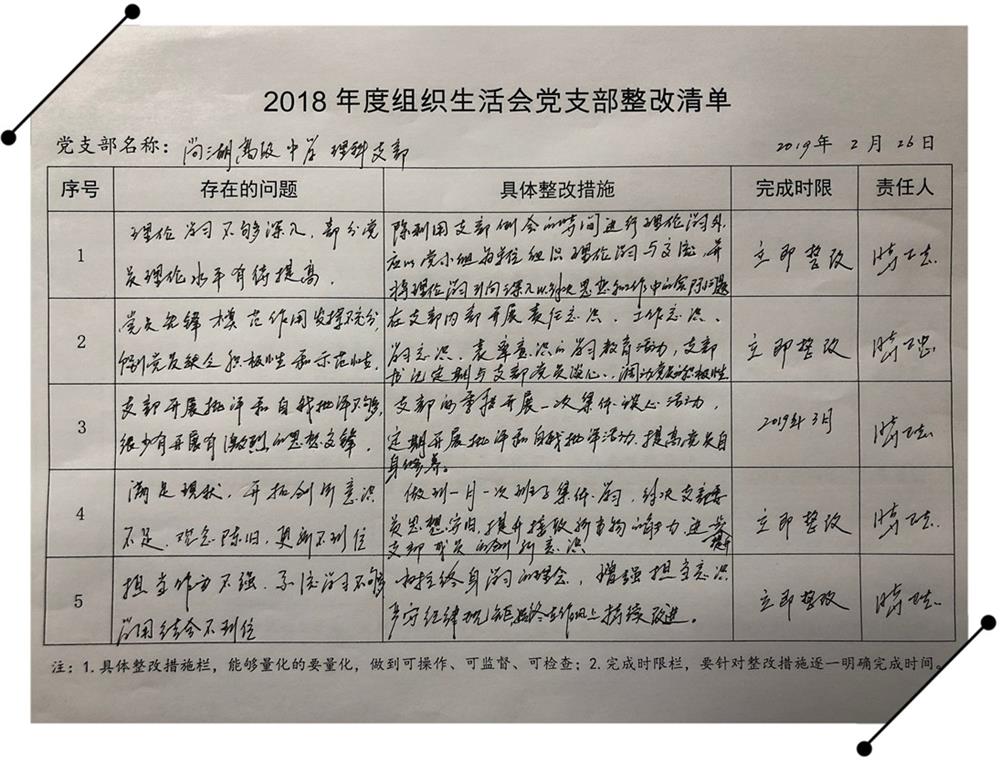 2018 年度组织生活会党支部整改清单
党支部名称：尚湖高级中学 理科支部 2019 年 2 月 26 日
序号 存在的问题 具体整改措施 完成时限 责任人
1
理论学习不够深入，部分党
员理论水平有待提高．
除利用支部例会的时间进行理论学习外，
应以党小组为单位组织理论学习与交流，并
将理论学习引向深入以解决思想和工作中的实际问题
立即整改
2
党员先锋模范作用发挥不充分，
个别党员缺乏积极性和示范性．
在支部内部开展责任意识、工作意识、
学习意识、表率意识的学习教育活动，支部
书记定期与支部党员谈心，调动党员的积极性
立即整改
3
支部开展批评和自我批评不够，
很少有开展有激烈的思想交锋．
支部每季度开展一次集体谈心活动，
定期开展批评和自我批评活动，提高党员自
身修养。
2019年3月
4
满足现状，开拓创新意识
不足．观念陈旧，更新不到位
做到一月一次班子集体学习，解决支部委
员思想守旧，提升接受新事物的能力，进一步提升
支部成员的创新意识
立即整改
5
担当作为不强．系统学习不够
学用结合不到位
树立终身学习的理念，增强担当意识
严守纪律规矩，始终在作风上持续改进。
立即整改
注：1.具体整改措施栏，能够量化的要量化，做到可操作、可监督、可检查；2.完成时限栏，要针对整改措施逐一明确完成时间。